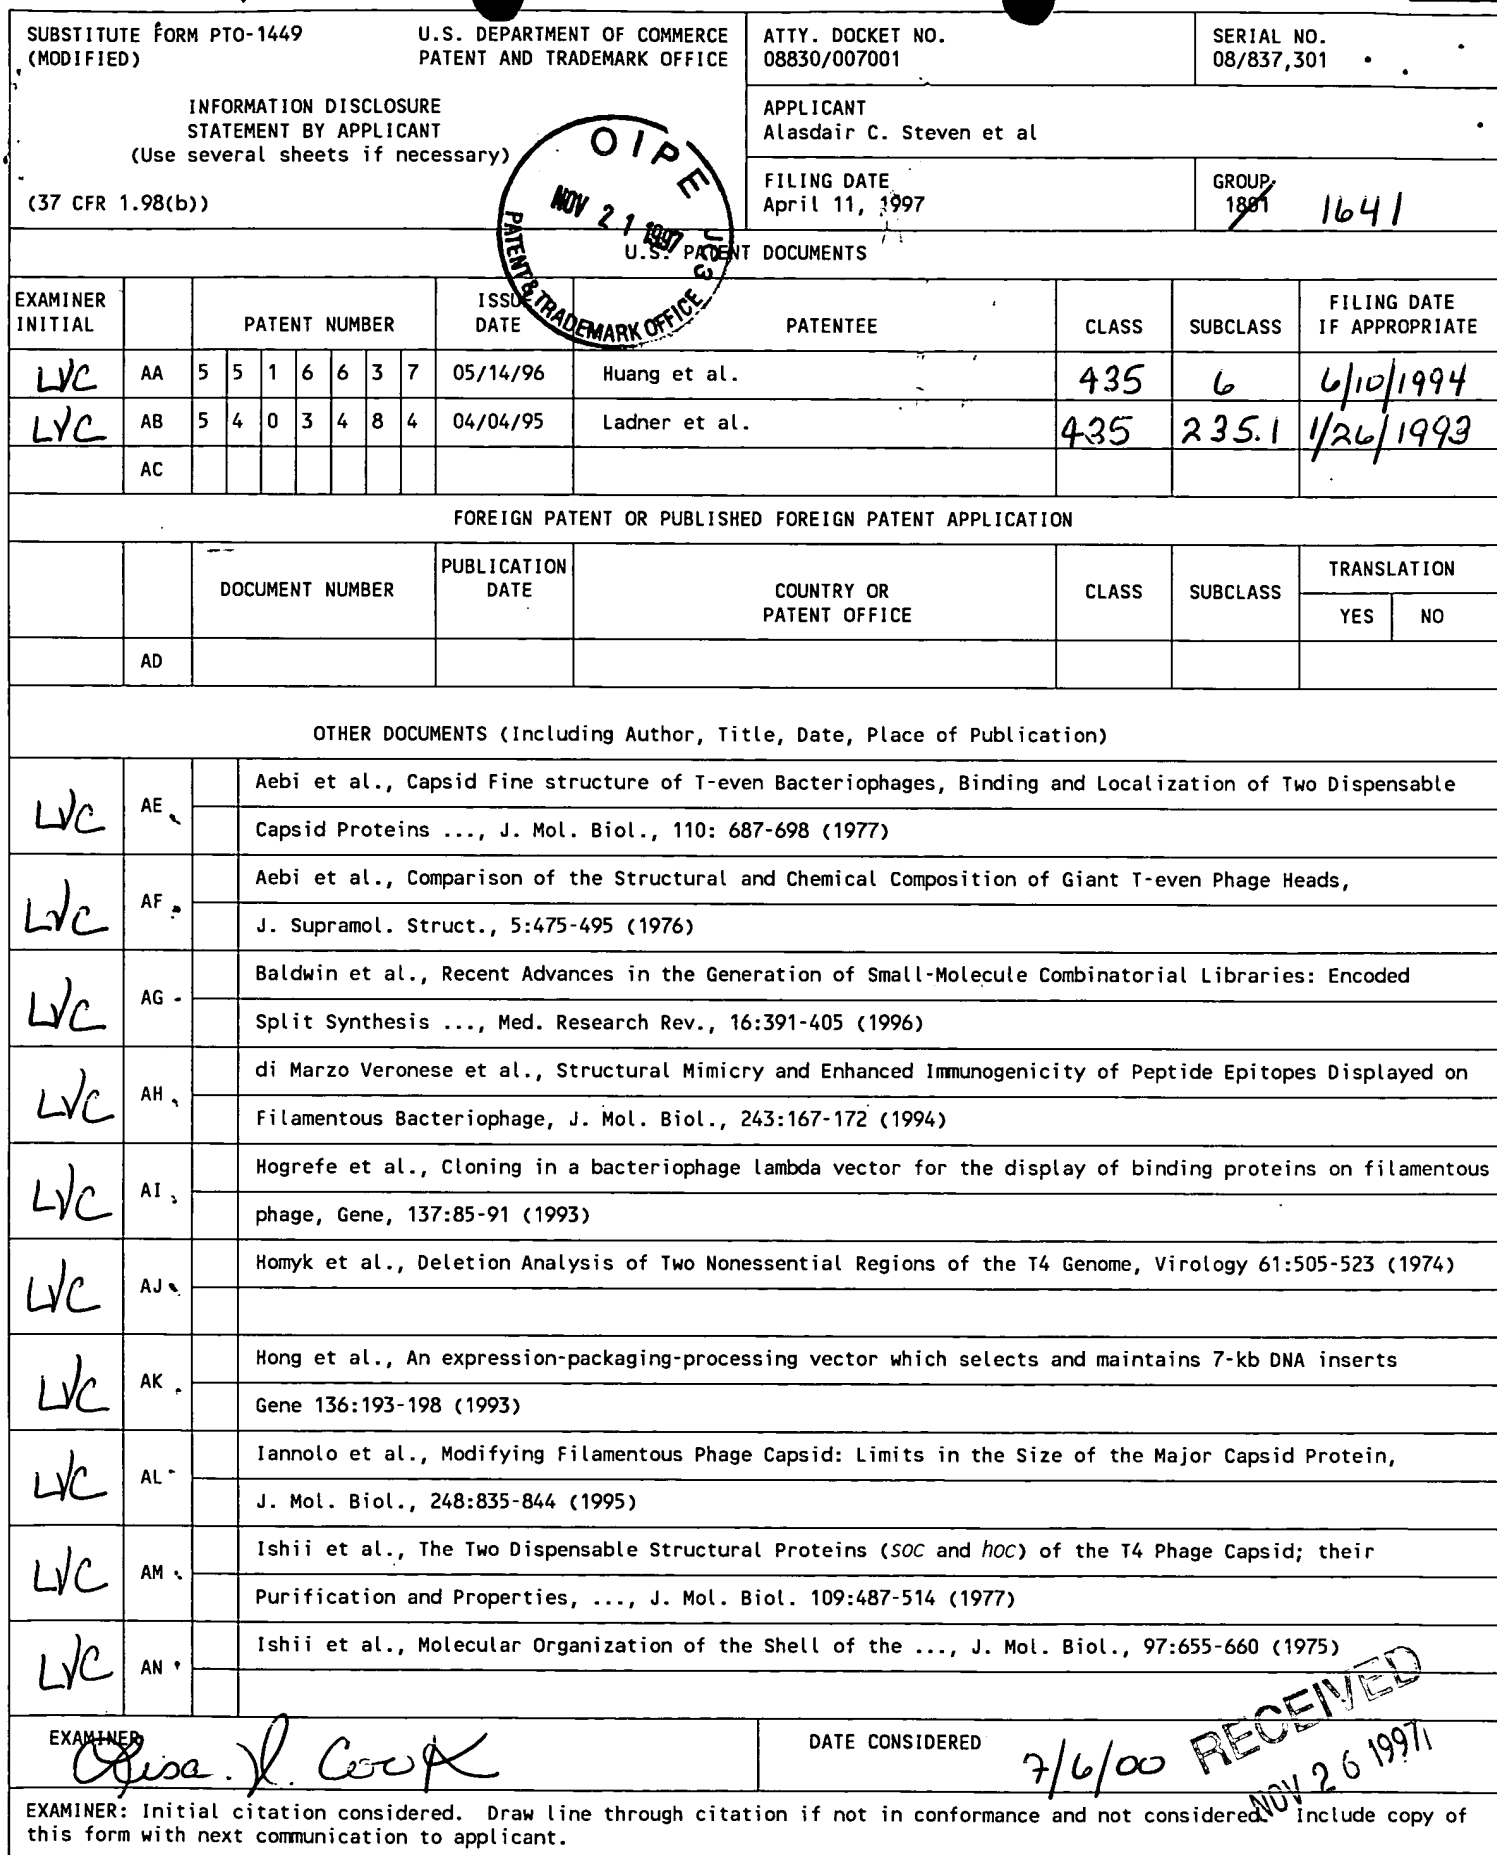 SUBSTITUTE FORM PTO-1449 U.S. DEPARTMENT OF COMMERCE
(MODIFIED) PATENT AND TRADEMARK OFFICE
ATTY. DOCKET NO.
08830/007001
SERIAL NO.
08/837,301
INFORMATION DISCLOSURE
STATEMENT BY APPLICANT
(Use several sheets if necessary)
(37 CFR 1.98(b))
APPLICANT
Alasdair C. Steven et al
FILING DATE
April 11, 1997
GROUP
1801 1641
OIPE JC33
NOV 21 1997
PATENT & TRADEMARK OFFICE
U.S. PATENT DOCUMENTS
EXAMINER INITIAL PATENT NUMBER ISSUE DATE PATENTEE CLASS SUBCLASS FILING DATE IF APPROPRIATE
LVC AA 5 5 1 6 6 3 7 05/14/96 Huang et al. 435 6 6/10/1994
LVC AB 5 4 0 3 4 8 4 04/04/95 Ladner et al. 435 235.1 1/26/1993
AC
FOREIGN PATENT OR PUBLISHED FOREIGN PATENT APPLICATION
DOCUMENT NUMBER PUBLICATION DATE COUNTRY OR PATENT OFFICE CLASS SUBCLASS TRANSLATION YES NO
AD
OTHER DOCUMENTS (Including Author, Title, Date, Place of Publication)
LVC AE Aebi et al., Capsid Fine structure of T-even Bacteriophages, Binding and Localization of Two Dispensable
Capsid Proteins ..., J. Mol. Biol., 110: 687-698 (1977)
LVC AF Aebi et al., Comparison of the Structural and Chemical Composition of Giant T-even Phage Heads,
J. Supramol. Struct., 5:475-495 (1976)
LVC AG Baldwin et al., Recent Advances in the Generation of Small-Molecule Combinatorial Libraries: Encoded
Split Synthesis ..., Med. Research Rev., 16:391-405 (1996)
LVC AH di Marzo Veronese et al., Structural Mimicry and Enhanced Immunogenicity of Peptide Epitopes Displayed on
Filamentous Bacteriophage, J. Mol. Biol., 243:167-172 (1994)
LVC AI Hogrefe et al., Cloning in a bacteriophage lambda vector for the display of binding proteins on filamentous
phage, Gene, 137:85-91 (1993)
LVC AJ Homyk et al., Deletion Analysis of Two Nonessential Regions of the T4 Genome, Virology 61:505-523 (1974)
LVC AK Hong et al., An expression-packaging-processing vector which selects and maintains 7-kb DNA inserts
Gene 136:193-198 (1993)
LVC AL Iannolo et al., Modifying Filamentous Phage Capsid: Limits in the Size of the Major Capsid Protein,
J. Mol. Biol., 248:835-844 (1995)
LVC AM Ishii et al., The Two Dispensable Structural Proteins (soc and hoc) of the T4 Phage Capsid; their
Purification and Properties, ..., J. Mol. Biol. 109:487-514 (1977)
LVC AN Ishii et al., Molecular Organization of the Shell of the ..., J. Mol. Biol., 97:655-660 (1975)
RECEIVED
NOV 26 1997
EXAMINER Lisa V. Cook DATE CONSIDERED 7/6/00
EXAMINER: Initial citation considered. Draw line through citation if not in conformance and not considered. Include copy of
this form with next communication to applicant.